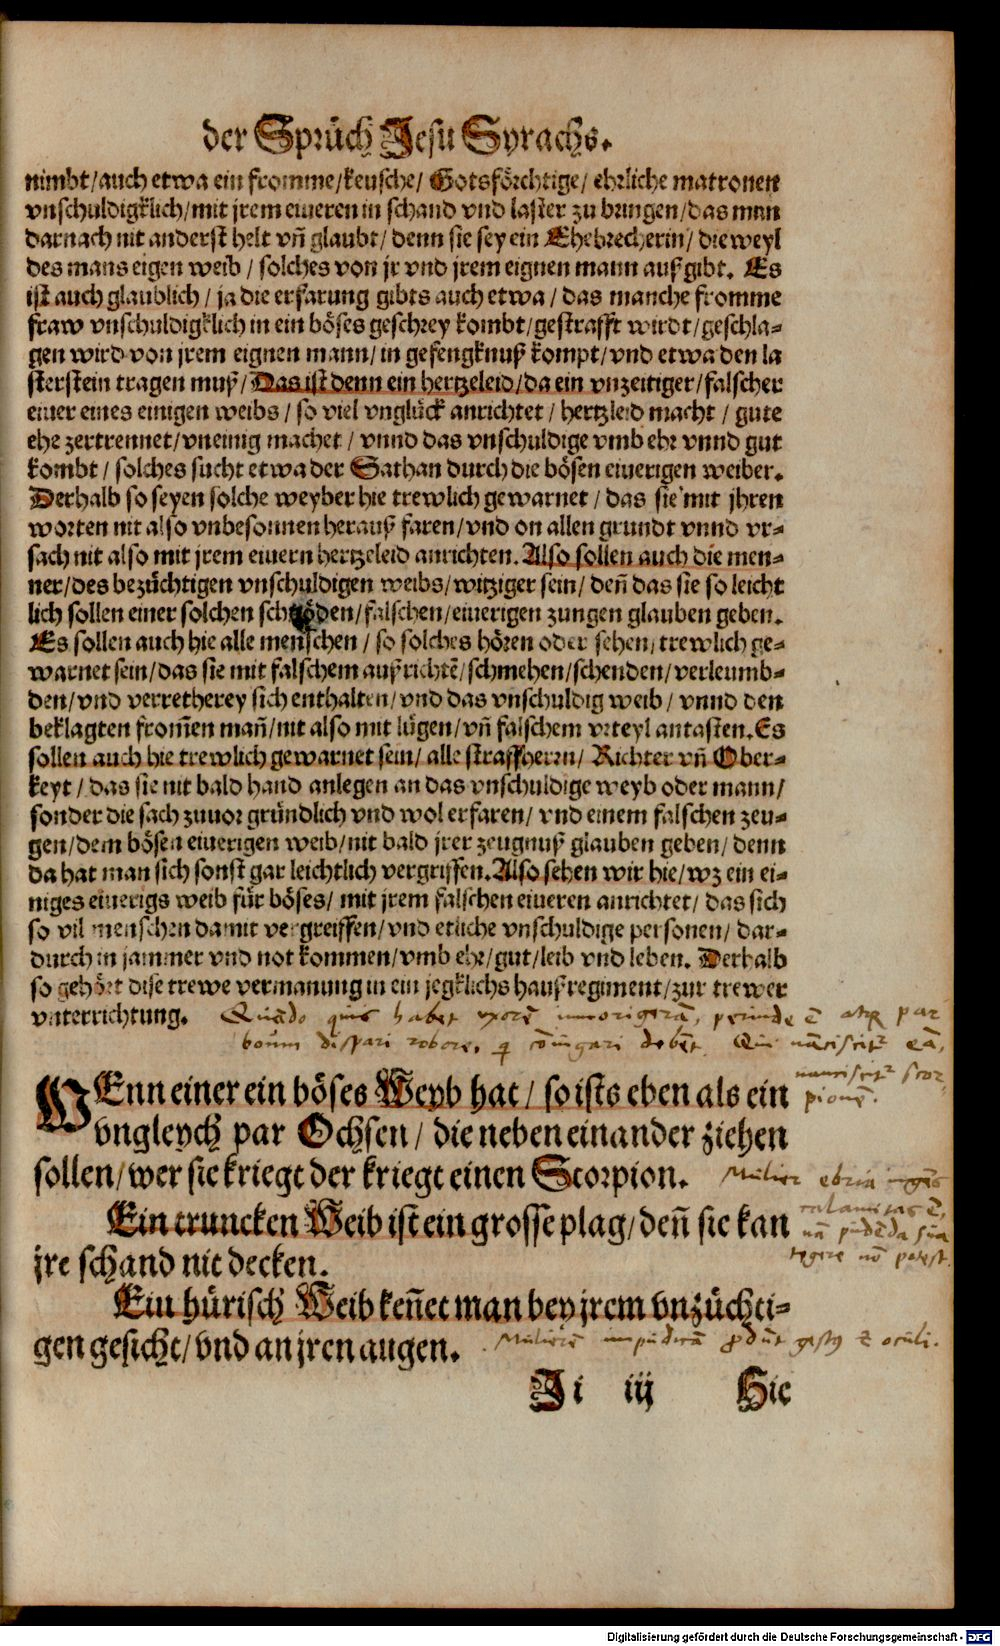 der Sprüch Jesu Syrachs.
nimbt/auch etwa ein fromme/keusche/ Gotsförchtige/ ehrliche matronen
vnschuldigklich/mit jrem eiueren in schand vnd laster zu bringen/das man
darnach nit anderst helt vñ glaubt/ denn sie sey ein Ehebrecherin/ die weyl
des mans eigen weib / solches von jr vnd jrem eignen mann außgibt. Es
ist auch glaublich / ja die erfarung gibts auch etwa / das manche fromme
fraw vnschuldigklich in ein böses geschrey kombt/gestrafft wirdt/geschla-
gen wird von jrem eignen mann/ in gefengknuß kompt/vnd etwa den la
sterstein tragen muß/ Das ist denn ein hertzeleid/da ein vnzeitiger/falscher
eiuer eines einigen weibs / so viel vnglück anrichtet / hertzleid macht / gute
ehe zertrennet/vneinig machet / vnnd das vnschuldige vmb ehr vnnd gut
kombt / solches sucht etwa der Sathan durch die bösen eiuerigen weiber.
Derhalb so seyen solche weyber hie trewlich gewarnet / das sie mit jhren
worten nit also vnbesonnen herauß faren/vnd on allen grundt vnnd vr-
sach nit also mit jrem eiuern hertzeleid anrichten. Also sollen auch die men-
ner/des bezüchtigen vnschuldigen weibs/witziger sein/ deñ das sie so leicht
lich sollen einer solchen schnöden/falschen/eiuerigen zungen glauben geben.
Es sollen auch hie alle menschen / so solches hören oder sehen/trewlich ge-
warnet sein/das sie mit falschem außrichtē/schmehen/schenden/verleumb-
den/vnd verretherey sich enthalten/vnd das vnschuldig weib / vnnd den
beklagten from̃en mañ/nit also mit lügen/vñ falschem vrteyl antasten. Es
sollen auch hie trewlich gewarnet sein/ alle straffherrn/ Richter vñ Ober-
keyt / das sie nit bald hand anlegen an das vnschuldige weyb oder mann/
sonder die sach zuuor gründlich vnd wol erfaren/ vnd einem falschen zeu-
gen/dem bösen eiuerigen weib/nit bald jrer zeugnuß glauben geben/ denn
da hat man sich sonst gar leichtlich vergriffen. Also sehen wir hie/wz ein ei-
niges eiuerigs weib für böses/ mit jrem falschen eiueren anrichtet/das sich
so vil menschen damit vergreiffen/vnd etliche vnschuldige personen/ dar-
durch in jammer vnd not kommen/vmb ehr/gut/leib vnd leben. Derhalb
so gehört dise trewe vermanung in ein jegklichs haußregiment/zur trewer
vnterrichtung. Quādo quis habet vxorē immorigerā, perinde ē atqꝫ par
boum dispari robore, q̄ coniugari debēt. Qui nāciscitr̄ eā,
nanciscitr̄ scor-
pionē.
WEnn einer ein böses Weyb hat / so ists eben als ein
vngleych par Ochsen / die neben einander ziehen
sollen/wer sie kriegt der kriegt einen Scorpion.
Mulier ebria ingēs
calamitas ē,
nā pudēda sua
tegere nō potest.
Ein truncken Weib ist ein grosse plag/deñ sie kan
jre schand nit decken.
Ein hürisch Weib keñet man bey jrem vnzüchti-
gen gesicht/vnd an jren augen. Mulierē impudicā ꝓdūt gestꝰ et oculi.
Ji iij Hie
Digitalisierung gefördert durch die Deutsche Forschungsgemeinschaft - DFG